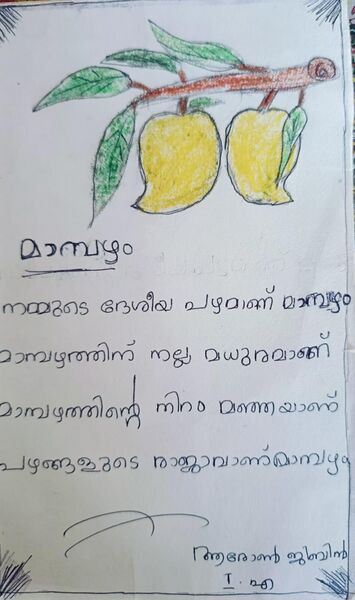 മാമ്പഴം
നമ്മുടെ ദേശീയ പഴമാണ് മാമ്പഴം
മാമ്പഴത്തിന് നല്ല മധുരമാണ്
മാമ്പഴത്തിന്റെ നിറം മഞ്ഞയാണ്
പഴങ്ങളുടെ രാജാവാണ് മാമ്പഴം
ആരോൺ ജിബിൻ
I. എ